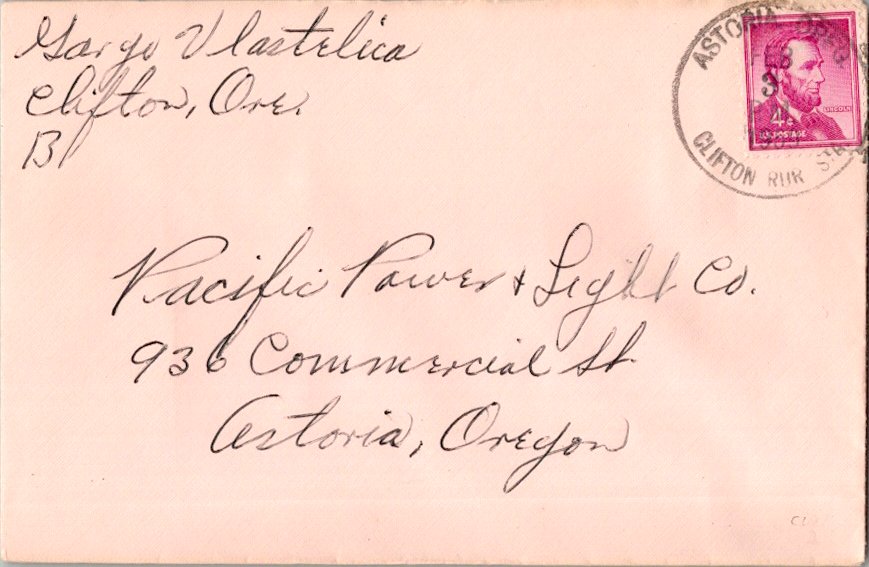 Gargo Vlastelica
Clifton, Ore.
B
Pacific Power + Light Co.
936 Commercial St.
Astoria, Oregon
ASTORIA, OREG
FEB
3
CLIFTON RUR STA
LINCOLN
4¢
U.S. POSTAGE